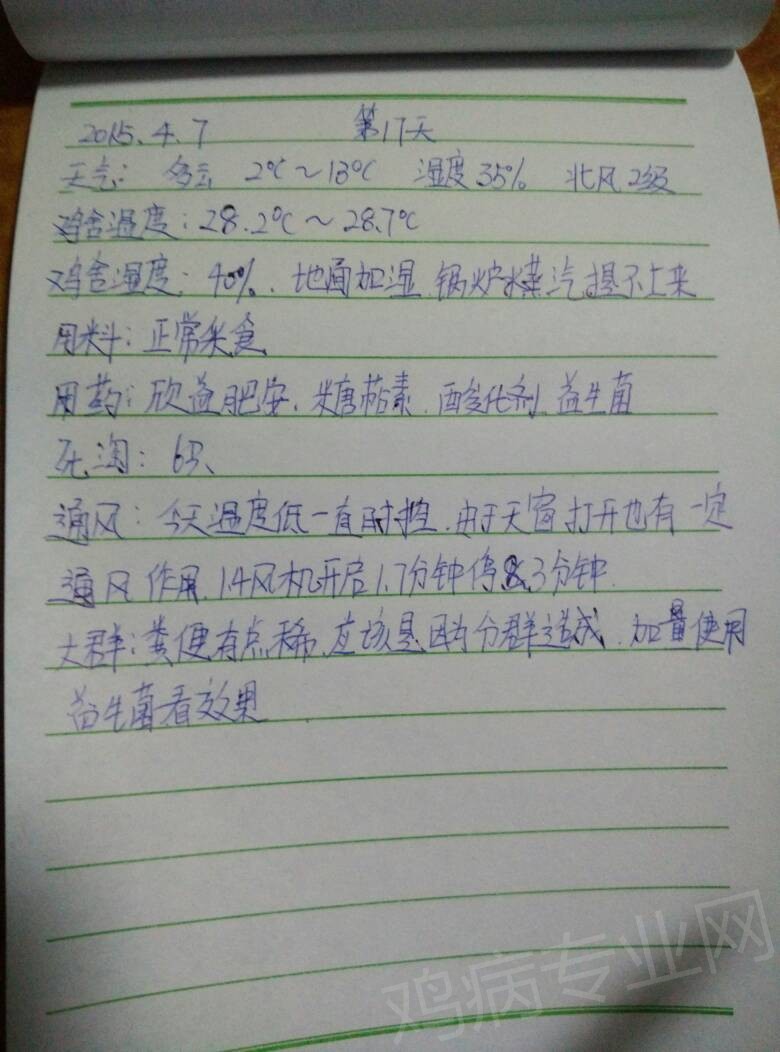 2015.4.7 第17天
天气: 多云 2℃～13℃ 湿度35% 北风2级
鸡舍温度:28.2℃～28.7℃
鸡舍湿度: 40%. 地面加湿.锅炉水蒸汽提不上来
用料: 正常采食
用药: 欣益肥安. 糖萜素. 酸化剂 益生菌
死淘: 6只
通风: 今天温度低一直时控. 由于天窗打开也有一定
通风作用. 14风机开启1.7分钟停3分钟.
大群: 粪便有点稀.应该是因为分群造成. 加量使用
益生菌看效果
鸡病专业网